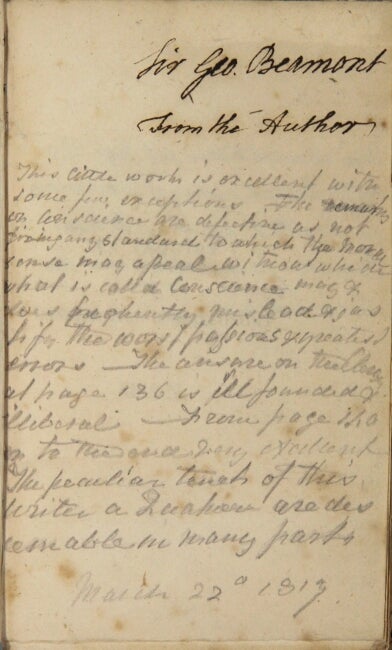 Sir Geo. Beamont
From the Author
This little work is excellent with
some few exceptions. The remarks
on conscience are defective as not
giving any standard to which the moral
sense may appeal without which
what is called Conscience may &
does frequently mislead & jus
tify the worst passions & greatest
errors — The censure on the Clergy
at page 136 is ill founded &
illiberal — From page 150
on to the end very excellent
The peculiar tenets of this
Writer a Quaker are des
cernable in many parts
March 22d 1817.